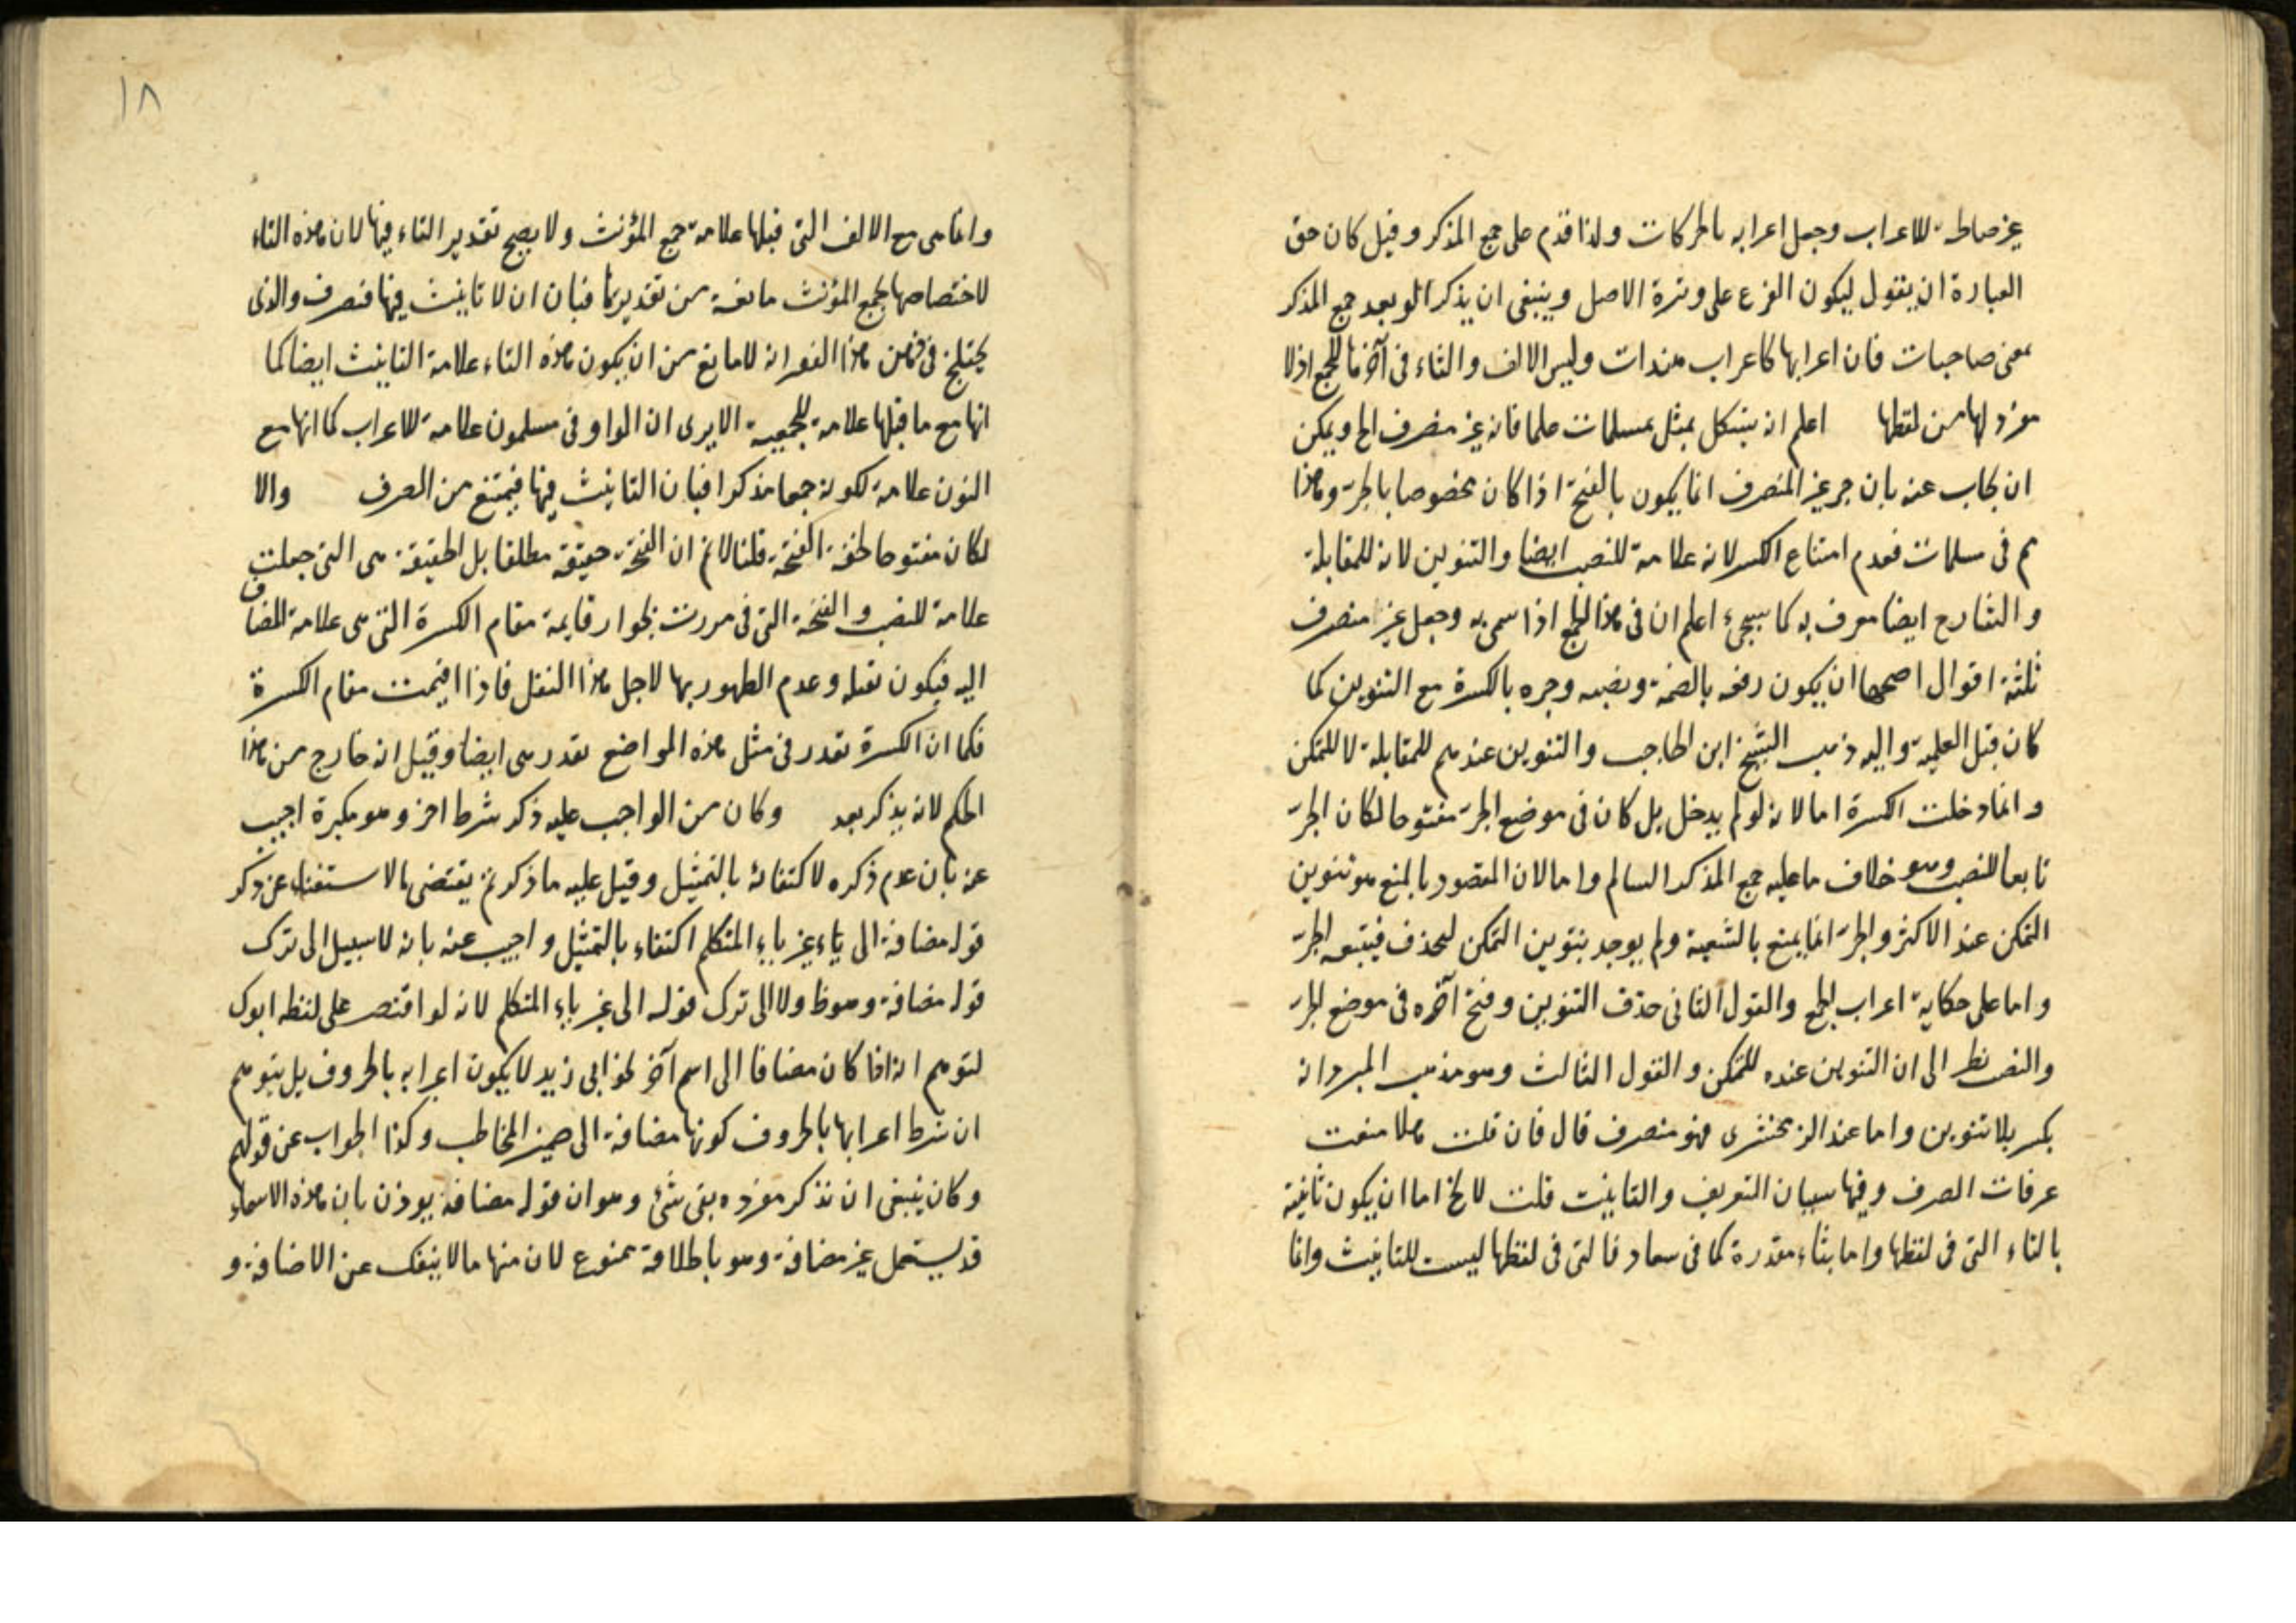 غير صالحة للاعراب وجعل اعرابه بالحركات ولذا قدم على جمع المذكر وقيل كان حق
العبارة ان يقول ليكون الفرع على وتيرة الاصل وينبغى ان يذكر الو بعد جمع المذكر
بمعنى صاحبات فان اعرابها كاعراب هندات وليس الالف والتاء فى آخرها للجمع اذ لا
مفرد لها من لفظها اعلم انه يشكل بمثل مسلمات علما فانه غير منصرف الخ ويمكن
ان يجاب عنه بان جر غير المنصرف انما يكون بالفتحة اذا كان مخصوصا بالجر وهذا
هم فى مسلمات فعدم امتناع الكسر لانه علامة للنصب ايضا والتنوين لانه للمقابلة
والشارح ايضا معرف به كما سيجئ اعلم ان فى هذا الجمع اذا سمى به وجعل غير منصرف
ثلثة اقوال اصحها ان يكون رفعه بالضمة ونصبه وجره بالكسرة مع التنوين كما
كان قبل العلمية واليه ذهب الشيخ ابن الحاجب والتنوين عندهم للمقابلة لا للتمكن
وانما دخلت الكسرة اما لانه لو لم يدخل بل كان فى موضع الجر مفتوحا لكان الجر
تابعا للنصب وهو خلاف ما عليه جمع المذكر السالم واما لان المقصود بالمنع هو تنوين
التمكن عند الاكثر والجر انما يمنع بالتبعية ولم يوجد تنوين التمكن ليحذف فيتبعه الجر
واما على حكاية اعراب الجمع والقول الثانى حذف التنوين وفتح آخره فى موضع الجر
والنصب نظر الى ان التنوين عنده للتمكن والقول الثالث وهو مذهب المبرد انه
يكسر بلا تنوين واما عند الزمخشرى فهو منصرف قال فان قلت هلا منعت
عرفات الصرف وفيها سببان التعريف والتانيث قلت لا يخ اما ان يكون تانيثه
بالتاء التى فى لفظها واما بتاء مقدرة كما فى سعاد فالتى فى لفظها ليست للتانيث وانما
١٨
وانما هى مع الالف التى قبلها علامة جمع المؤنث ولا يصح تقدير التاء فيها لان هذه التاء
لاختصاصها بجمع المؤنث مانعة من تقديرها فبان ان لا تانيث فيها فتصرف والذى
يختلج فى ذهن هذا الفقير انه لا مانع من ان يكون هذه التاء علامة التانيث ايضا كما
انها مع ما قبلها علامة للجمعية الا يرى ان الواو فى مسلمون علامة للاعراب كما انها مع
النون علامة لكونه جمعا مذكرا فبان التانيث فيها فيمتنع من الصرف والا
لكان مفتوحا لخفة الفتحة قلنا لا نم ان الفتحة خفيفة مطلقا بل الخفيفة هى التى جعلت
علامة للنصب والفتحة التى فى مررت بجوار قايمة مقام الكسرة التى هى علامة للمضاف
اليه فيكون ثقله وعدم الظهور بها لاجل هذا الثقل فاذا اقيمت مقام الكسرة
فكما ان الكسرة تقدر فى مثل هذه المواضع تقدر هى ايضا وقيل انه خارج من هذا
الحكم لانه يذكر بعد وكان من الواجب عليه ذكر شرط اخر وهو مكبرة اجيب
عنه بان عدم ذكره لاكتفائه بالتمثيل وقيل عليه ما ذكرتم يقتضى الاستغناء عن ذكر
قوله مضافة الى ياء غير ياء المتكلم اكتفاء بالتمثيل واجيب عنه بانه لا سبيل الى ترك
قوله مضافة وهو ظ ولا الى ترك قوله الى غير ياء المتكلم لانه لو اقتصر على لفظه ابوك
لتوهم انه اذا كان مضافا الى اسم آخر نحو ابى زيد لا يكون اعرابه بالحروف بل يتوهم
ان شرط اعرابها بالحروف كونها مضافة الى ضمير المخاطب وكذا الجواب عن قولهم
وكان ينبغى ان تذكر مفرده بقى شئ وهو ان قوله مضافة يوذن بان هذه الاسماء
قد يستعمل غير مضافة وهو باطلاقه ممنوع لان منها ما لا ينفك عن الاضافة و